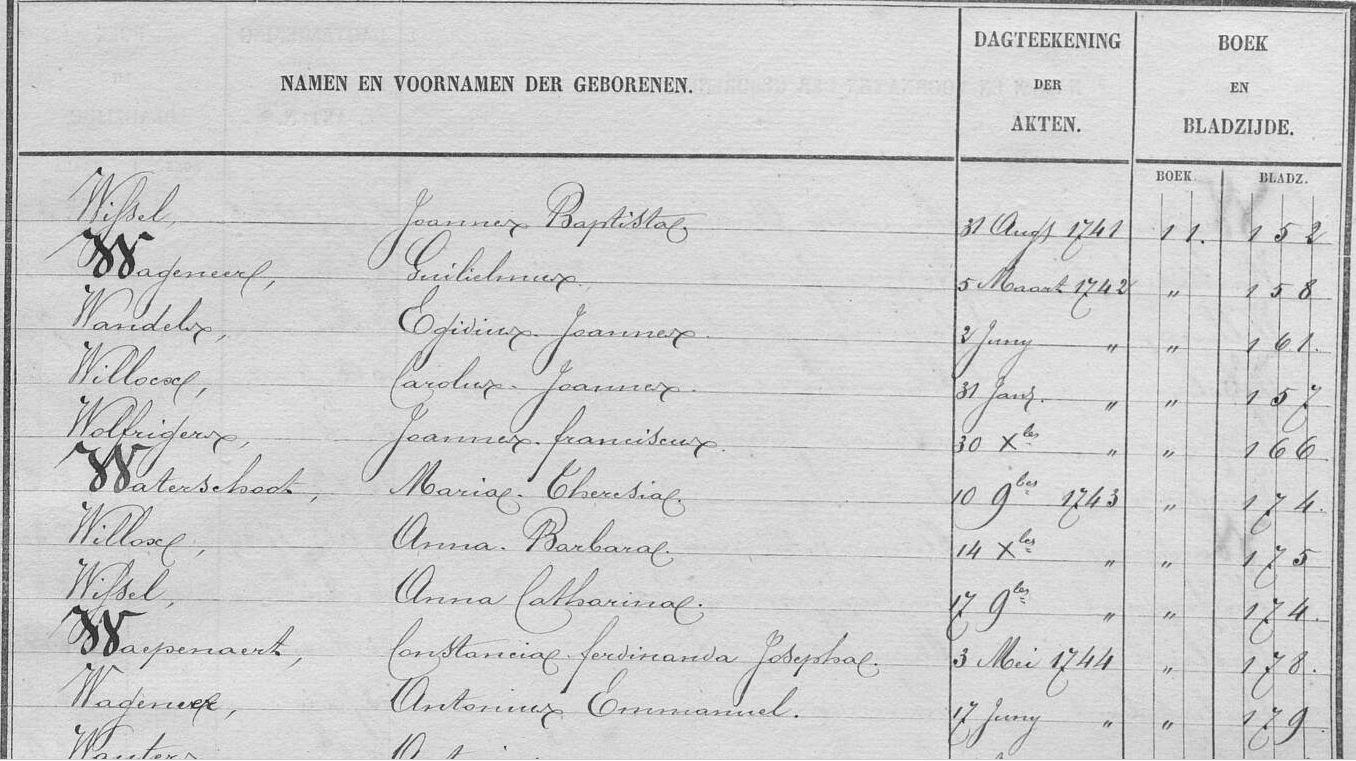 NAMEN EN VOORNAMEN DER GEBORENEN. DAGTEEKENING DER AKTEN. BOEK EN BLADZIJDE.
BOEK. BLADZ.
Wissel, Joannes Baptista 31 Augt 1741 11. 152
Wageneer, Guilielmus 5 Maart 1742 " 158
Wandels, Egidius Joannes. 2 Juny " " 161.
Willocx, Carolus Joannes. 31 Jan. " " 157
Wolfrigers, Joannes franciscus. 30 Xber " " 166
Waterschoot, Maria Theresia. 10 9ber 1743 " 174.
Willox, Anna Barbara. 14 Xber " " 175
Wissel, Anna Catharina. 17 9ber " " 174.
Waepenaert, Constancia ferdinanda Josepha. 3 Mei 1744 " 178.
Wagenee, Antonius Emmanuel. 17 Juny " " 179.
Wauters